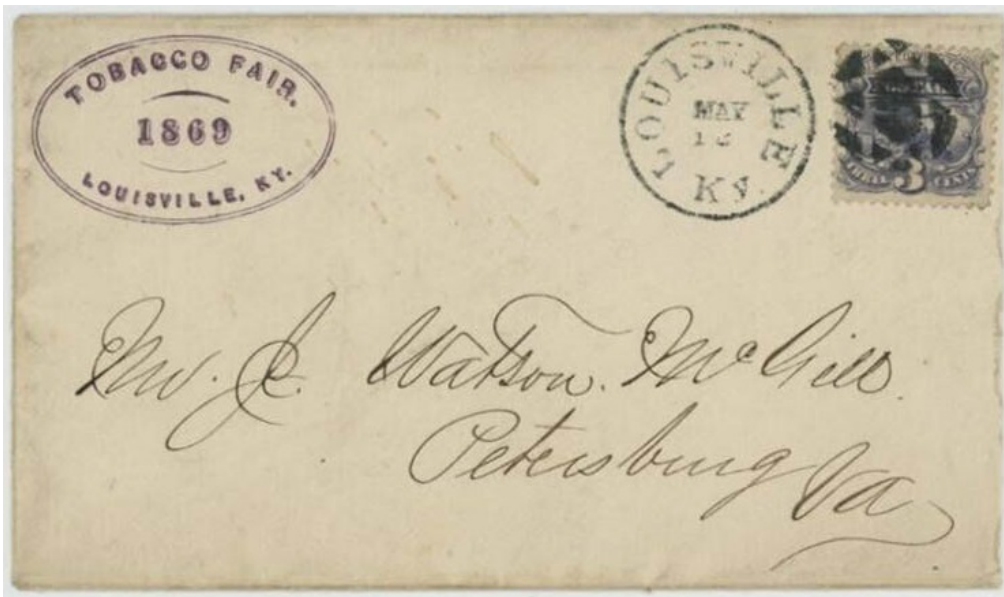 TOBACCO FAIR.
1869
LOUISVILLE, KY.
LOUISVILLE
MAY
Ky.
3
CENTS
Mr. J. Watson. McGill.
Petersburg
Va